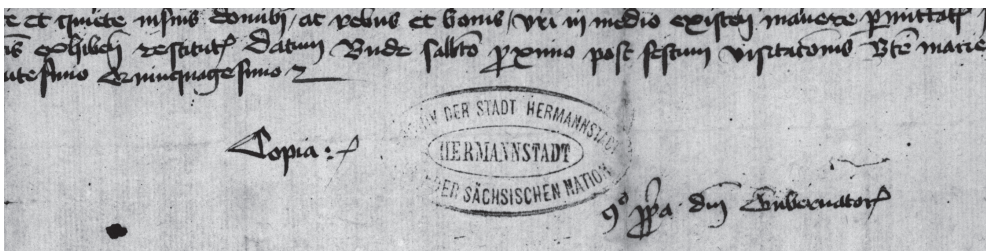 e et quiete in suis domibꝰ ac rebus et bonis vr̃i in medio existeñ manere p̱mittatꝭ
exhibeñ restitutꝭ Datum Bude sabb̄to ꝓximo post festum visitatōnis Bt̄e marie
tesimo Quinquagesimo
ARCHIV DER STADT HERMANNSTADT
HERMANNSTADT
DER SÄCHSISCHEN NATION
Copia :
Cō ꝓp̄a dn̄i Gubernatorꝭ